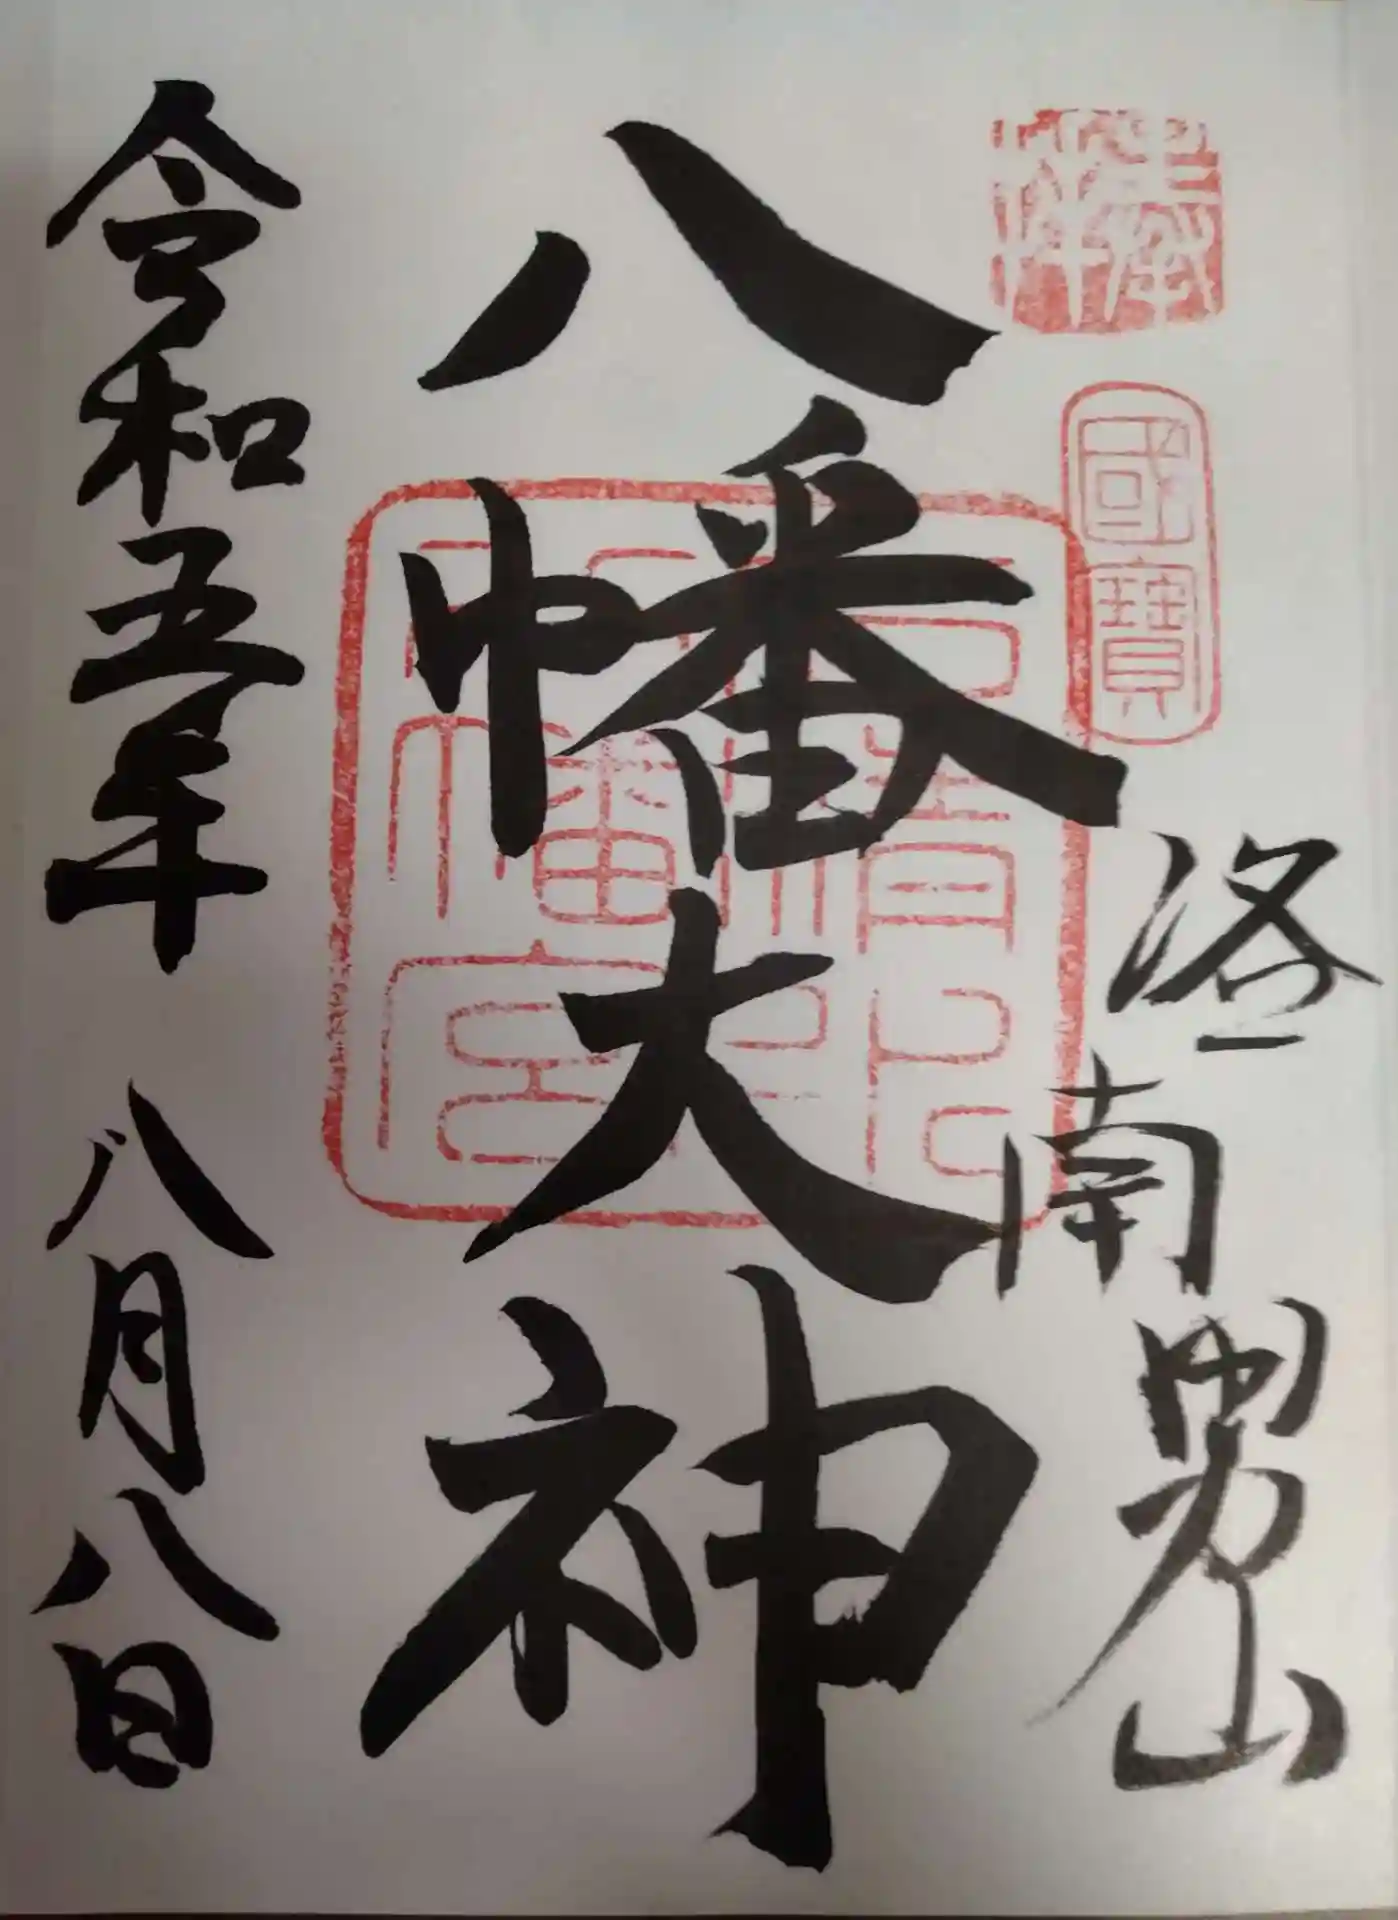 奉拝
國寳
洛南男山
石清水八幡宮
八幡大神
令和五年 八月八日